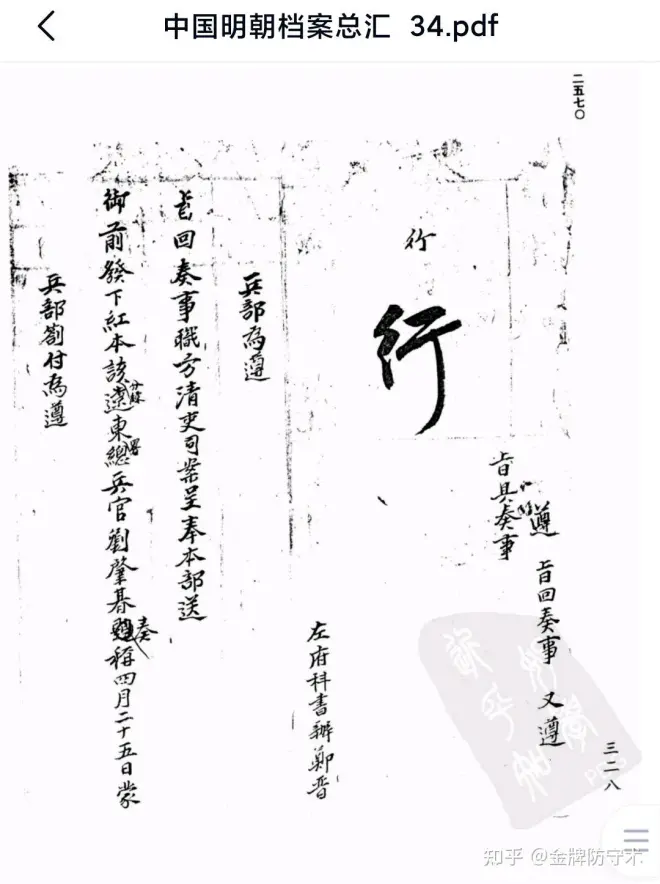 中国明朝档案总汇 34.pdf
二五七〇
三二八
遵 旨回奏事 又遵
旨具奏事
行
行
左府科書辦鄭晋
兵部為遵
旨回奏事職方清吏司案呈奉本部送
御前發下紅本該遼東總兵官劉肇基奏稱四月二十五日蒙
兵部劄付為遵
知乎 @金牌防守木